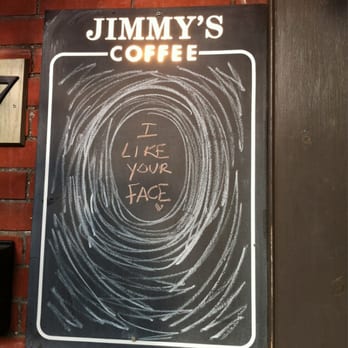 7
JIMMY'S
COFFEE
I
LIKE
YOUR
FACE